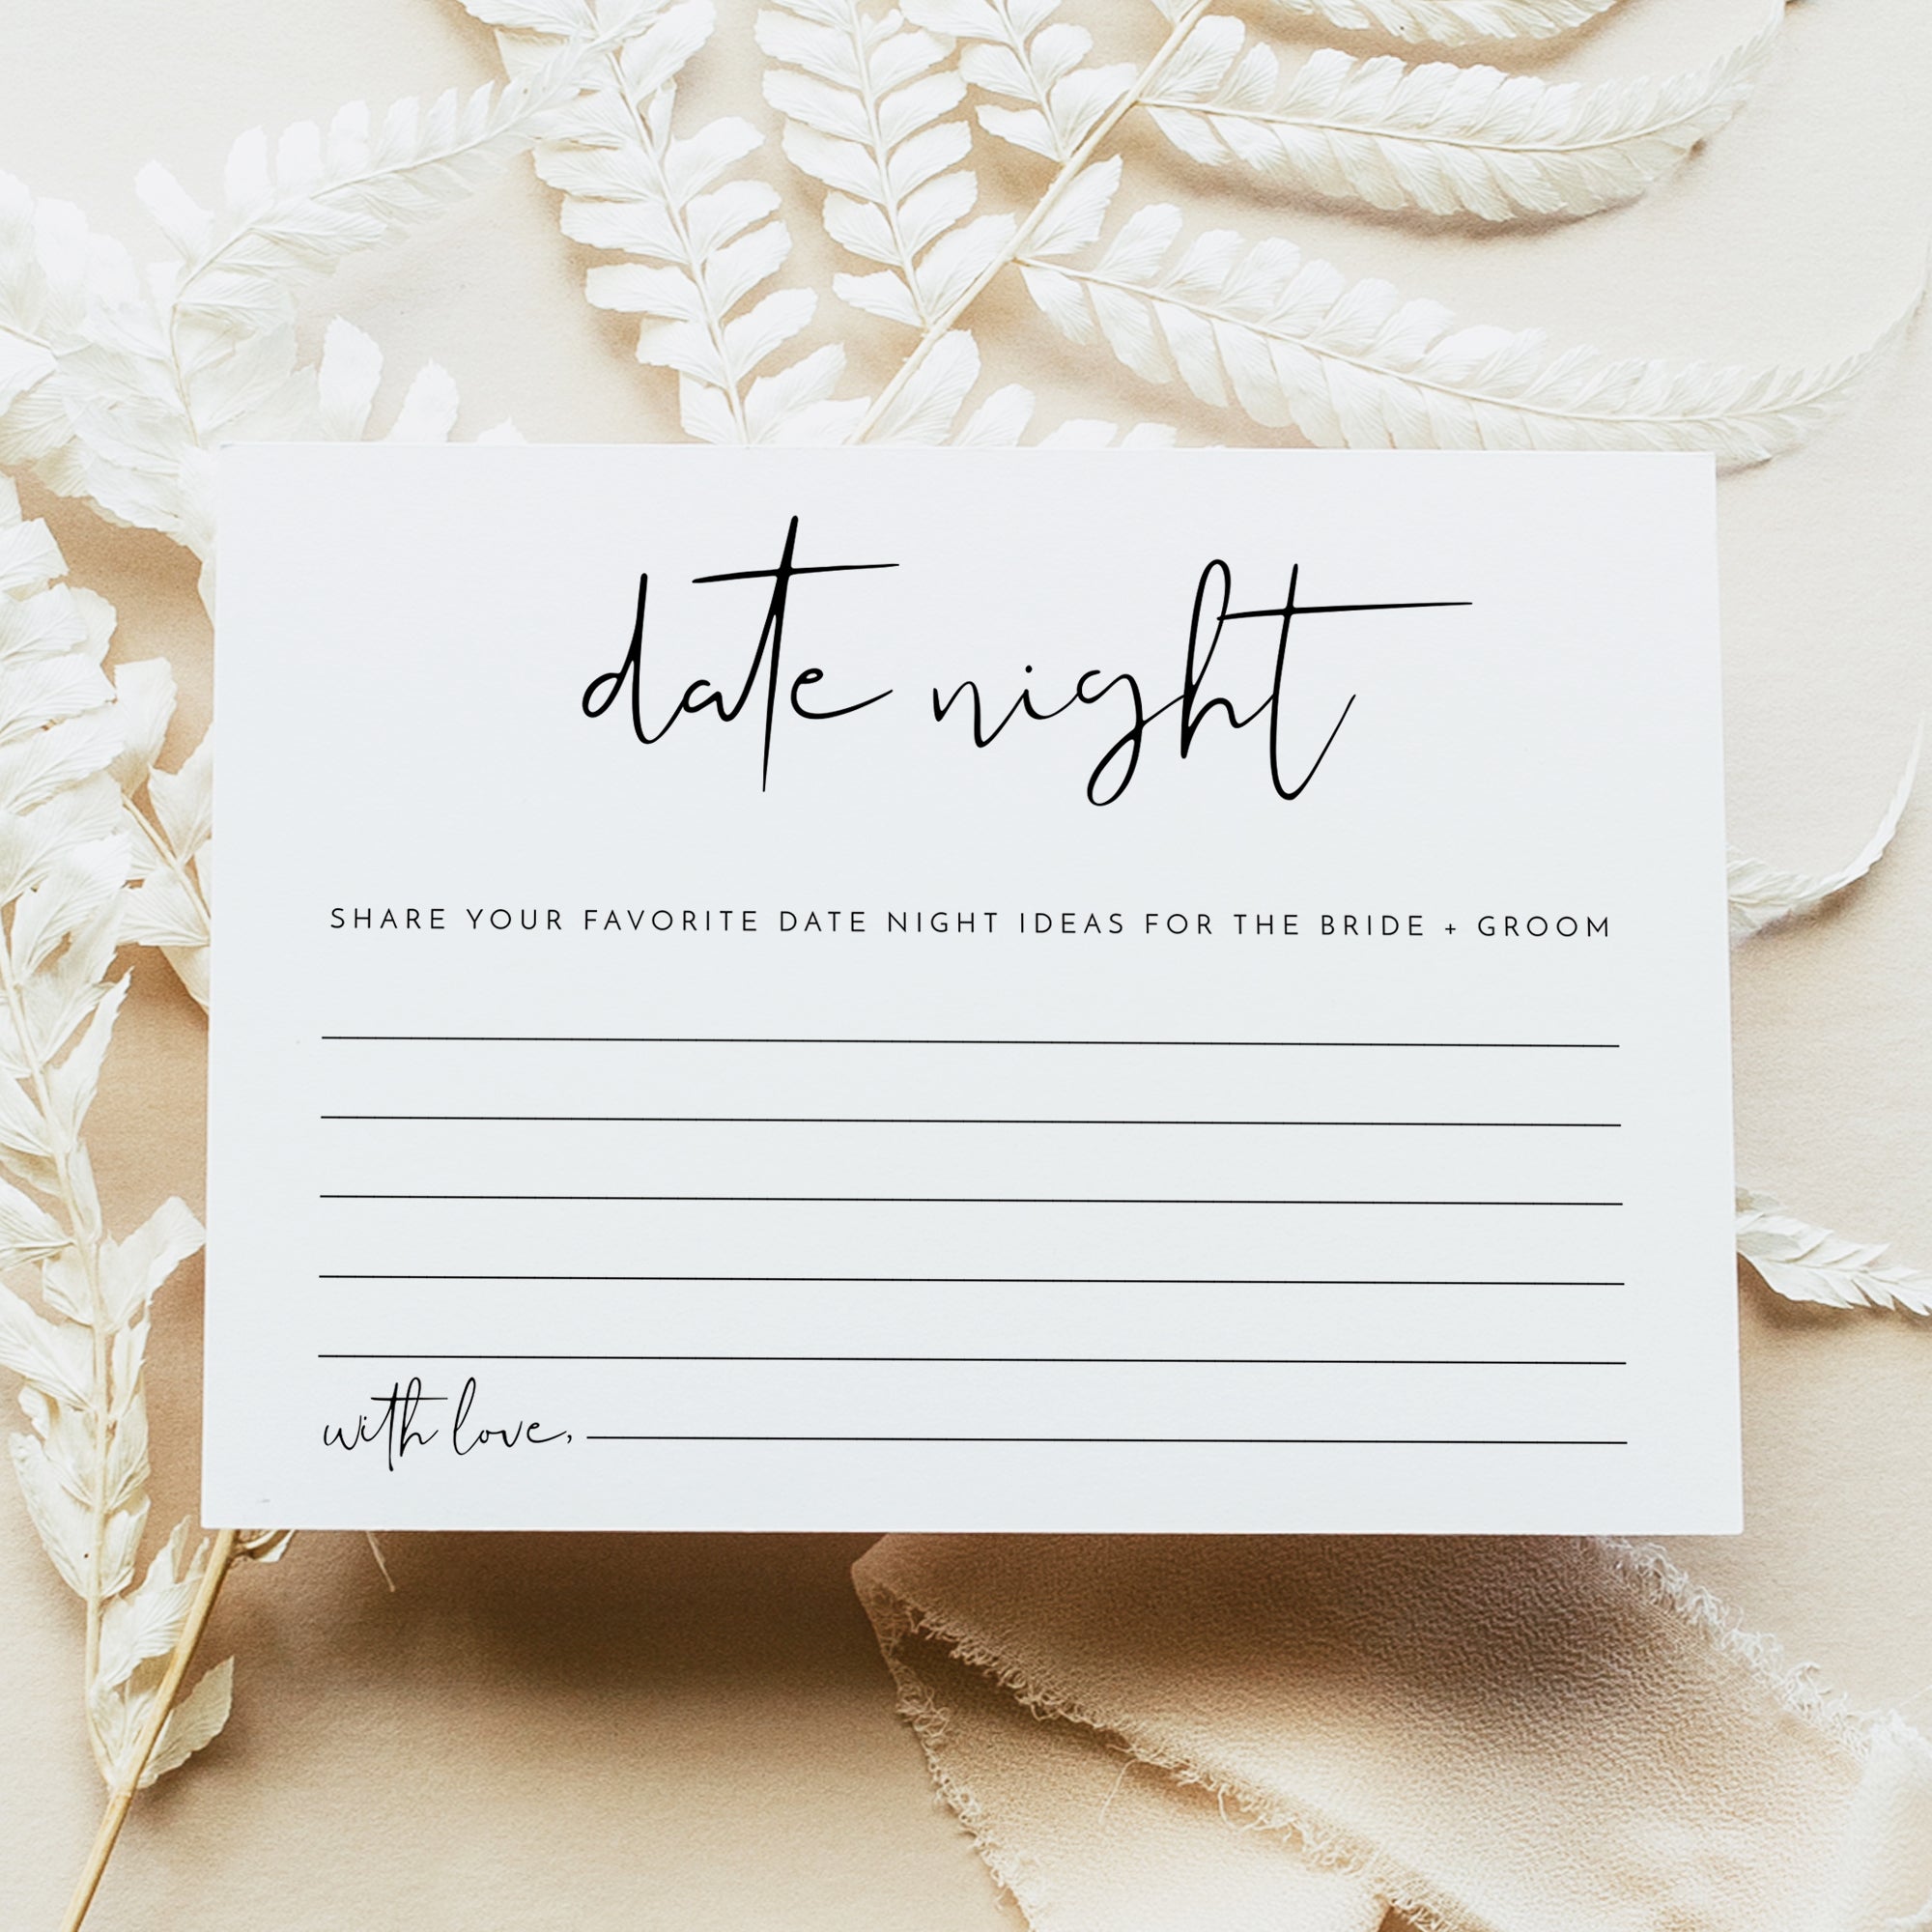 date night
SHARE YOUR FAVORITE DATE NIGHT IDEAS FOR THE BRIDE + GROOM
with love,